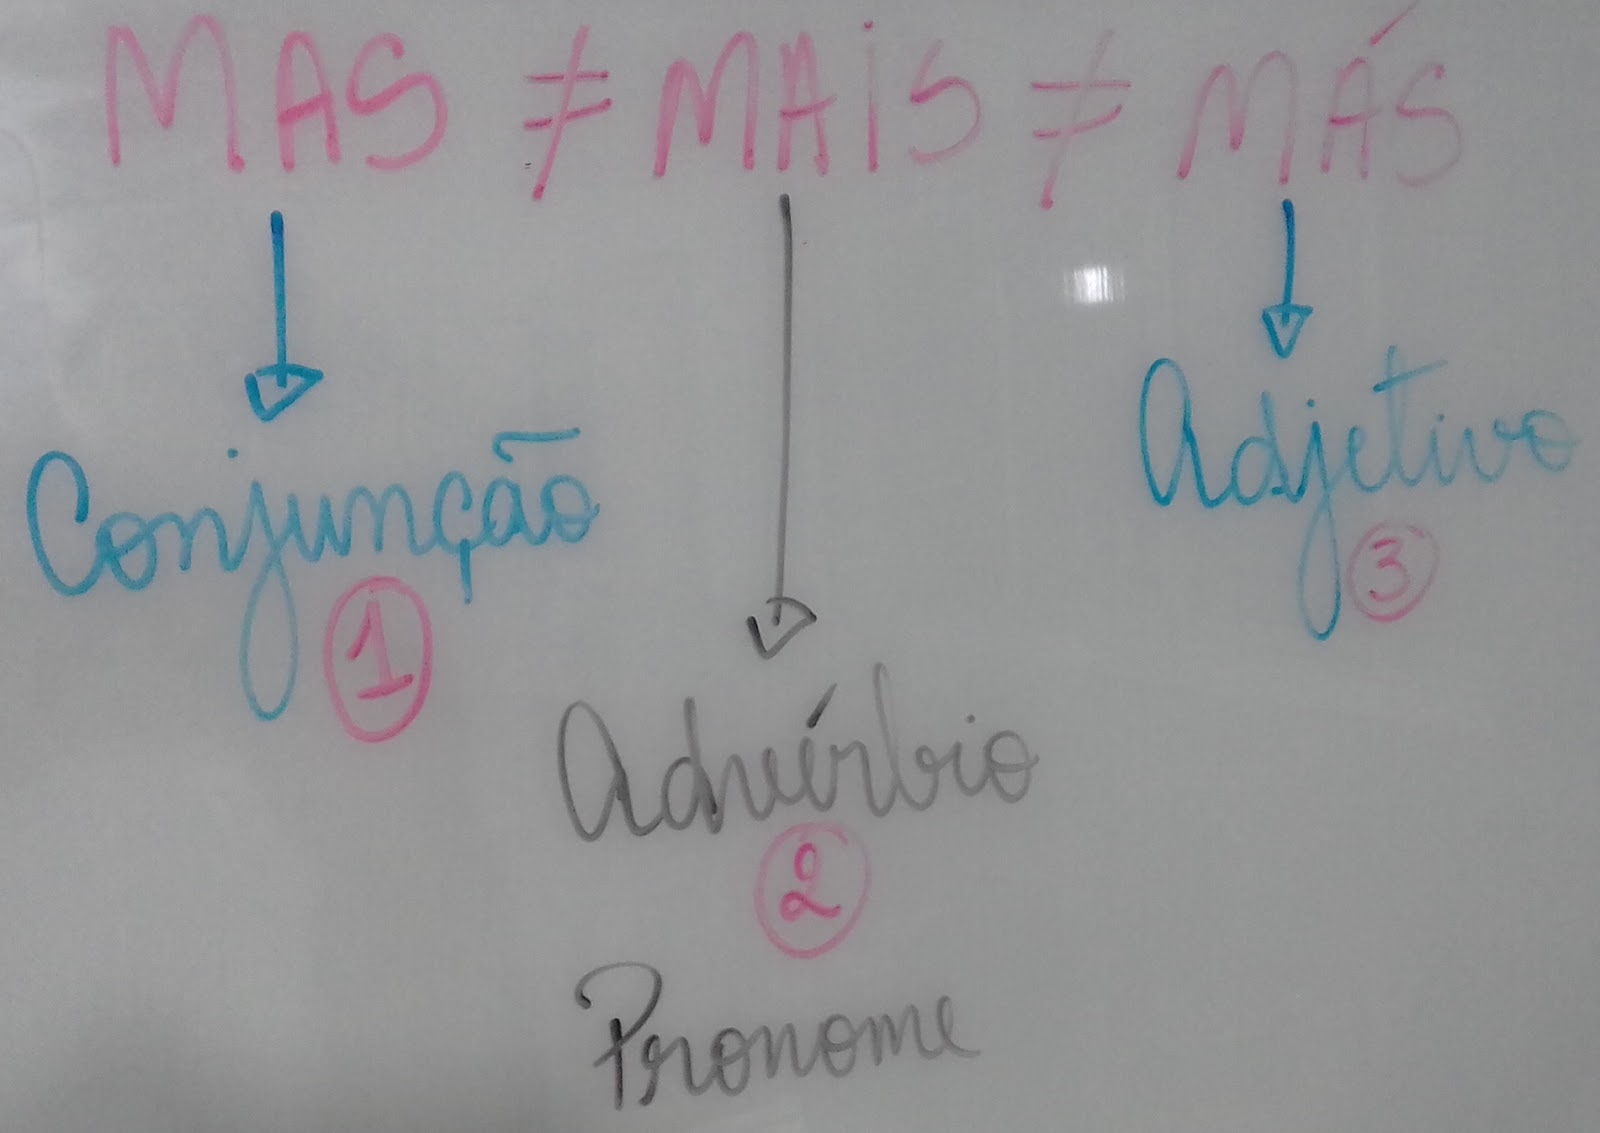 MAS ≠ MAIS ≠ MÁS
Conjunção
1
Adjetivo
3
Advérbio
2
Pronome